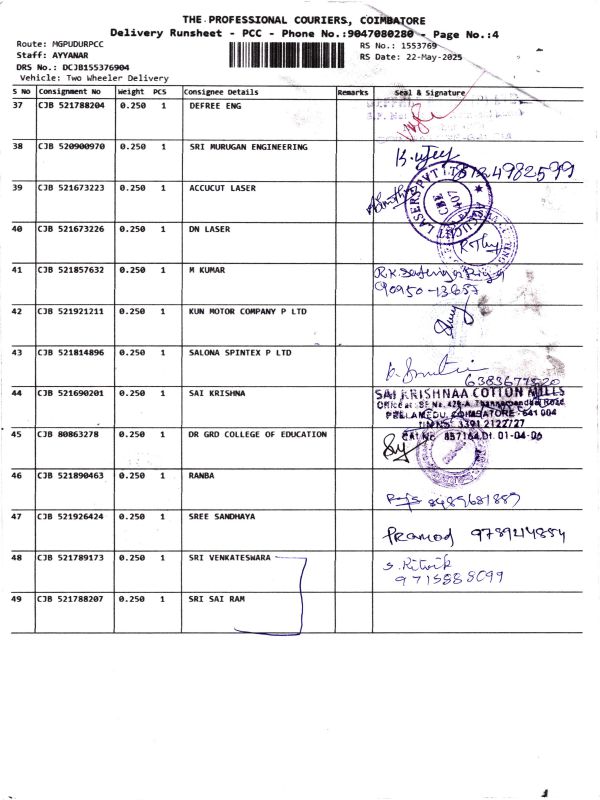 THE PROFESSIONAL COURIERS, COIMBATORE
Delivery Runsheet - PCC - Phone No.:9047080280 - Page No.:4
Route: MGPUDURPCC
Staff: AYYANAR
DRS No.: DCJB155376904
Vehicle: Two Wheeler Delivery
RS No.: 1553769
RS Date: 22-May-2025
S No Consignment No Weight PCS Consignee Details Remarks Seal & Signature
37 CJB 521788204 0.250 1 DEFREE ENG
38 CJB 520900970 0.250 1 SRI MURUGAN ENGINEERING
39 CJB 521673223 0.250 1 ACCUCUT LASER
ACCUCUT LASERS PVT LTD
CBE
40 CJB 521673226 0.250 1 DN LASER
41 CJB 521857632 0.250 1 M KUMAR
90950-13657
42 CJB 521921211 0.250 1 KUN MOTOR COMPANY P LTD
43 CJB 521814896 0.250 1 SALONA SPINTEX P LTD
44 CJB 521690201 0.250 1 SAI KRISHNA
SAI KRISHNAA COTTON MILLS
PEELAMEDU, COIMBATORE - 641 004
45 CJB 80863278 0.250 1 DR GRD COLLEGE OF EDUCATION
CST No 857164 Dt. 01-04-06
46 CJB 521890463 0.250 1 RANBA
8489681889
47 CJB 521926424 0.250 1 SREE SANDHAYA
Pramod 9789214854
48 CJB 521789173 0.250 1 SRI VENKATESWARA
S. Ritvik
9715888099
49 CJB 521788207 0.250 1 SRI SAI RAM